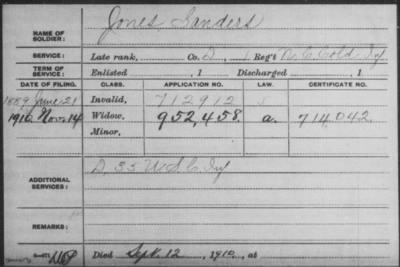 NAME OF SOLDIER: Jones, Sanders
SERVICE: Late rank, Co. D, 1 Reg't N. C. Cold Inf
TERM OF SERVICE: Enlisted , 1 Discharged , 1
DATE OF FILING. CLASS. APPLICATION NO. LAW. CERTIFICATE NO.
1889 June 21 Invalid, 712912
1910 Nov. 14 Widow, 952,458. a. 714,042.
Minor,
ADDITIONAL SERVICES: D. 35 U.S.C. Inf
REMARKS:
Died Sept. 12, 1910, at